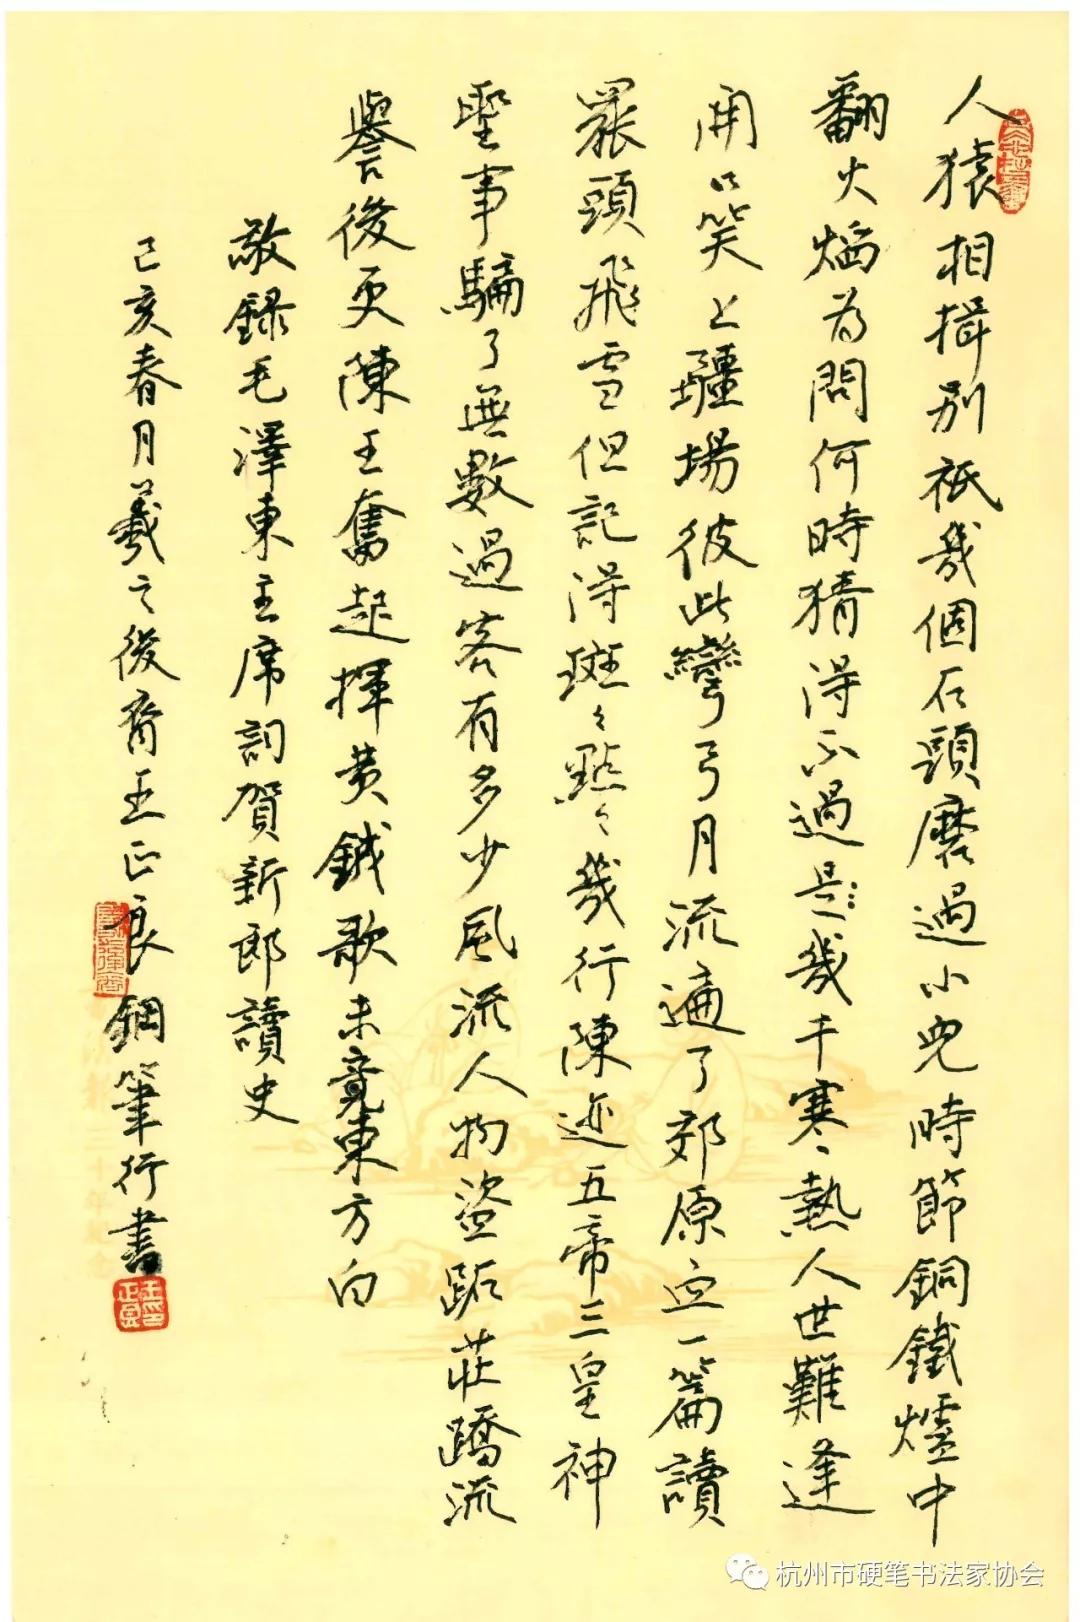 人猿相揖別祇幾個石頭磨過小兒時節銅鐵爐中
翻火焰為問何時猜得不過是幾千寒熱人世難逢
開口笑上疆場彼此彎弓月流遍了郊原血一篇讀
罷頭飛雪但記得斑々點々幾行陳迹五帝三皇神
聖事騙了無數過客有多少風流人物盜跖莊蹻流
譽後更陳王奮起揮黃鉞歌未竟東方白
敬錄毛澤東主席詞賀新郎讀史
己亥春月羲之後裔王正良鋼筆行書
杭州市硬笔书法家协会